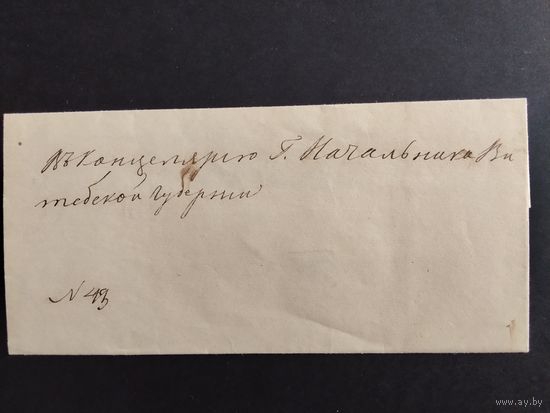 Въ Канцелярію Г. Начальника Ви
тебской Губерніи
N 43
www.ay.by